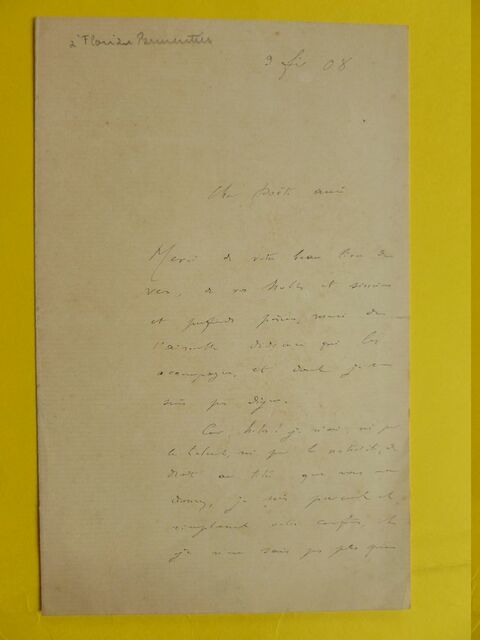 à Florian Parmentier
9 fév 08
Cher Poète ami
Merci de votre beau livre de
vers, de vos nobles et sincères
et profonds poèmes, merci de
l'aimable dédicace qui les
accompagne, et dont je ne
suis pas digne.
Car, hélas! je n'ai, ni par
le talent, ni par la notoriété, de
droit au titre que vous me
donnez, je suis purement et
simplement votre confrère, et
je ne me sais pas plus